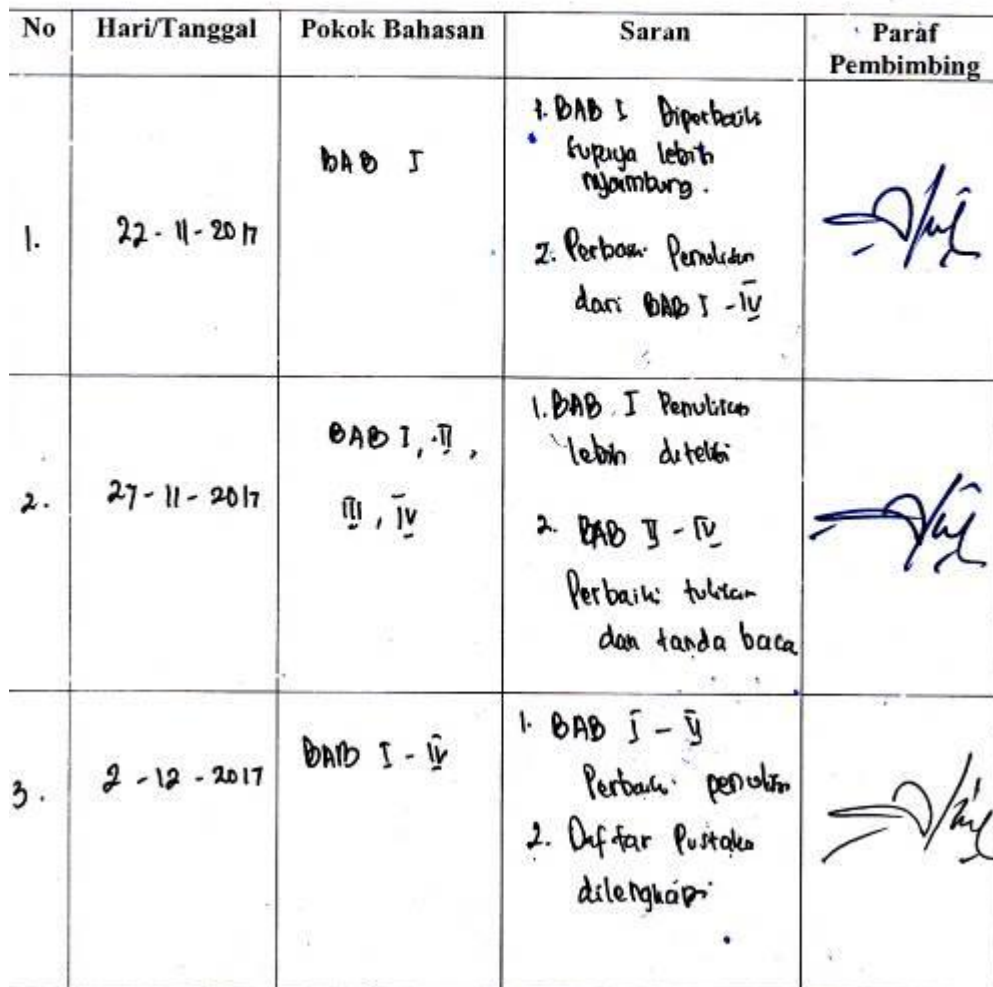 No Hari/Tanggal Pokok Bahasan Saran Paraf
Pembimbing
1. 22-11-2017 BAB I
1. BAB I Diperbaiki
supaya lebih
nyambung.
2. Perbaiki Penulisan
dari BAB I - IV
2. 27-11-2017 BAB I, II,
III, IV
1. BAB I Penulisan
lebih diteliti
2. BAB II - IV
Perbaiki tulisan
dan tanda baca
3. 2-12-2017 BAB I - IV
1. BAB I - V
Perbaiki penulisan
2. Daftar Pustaka
dilengkapi